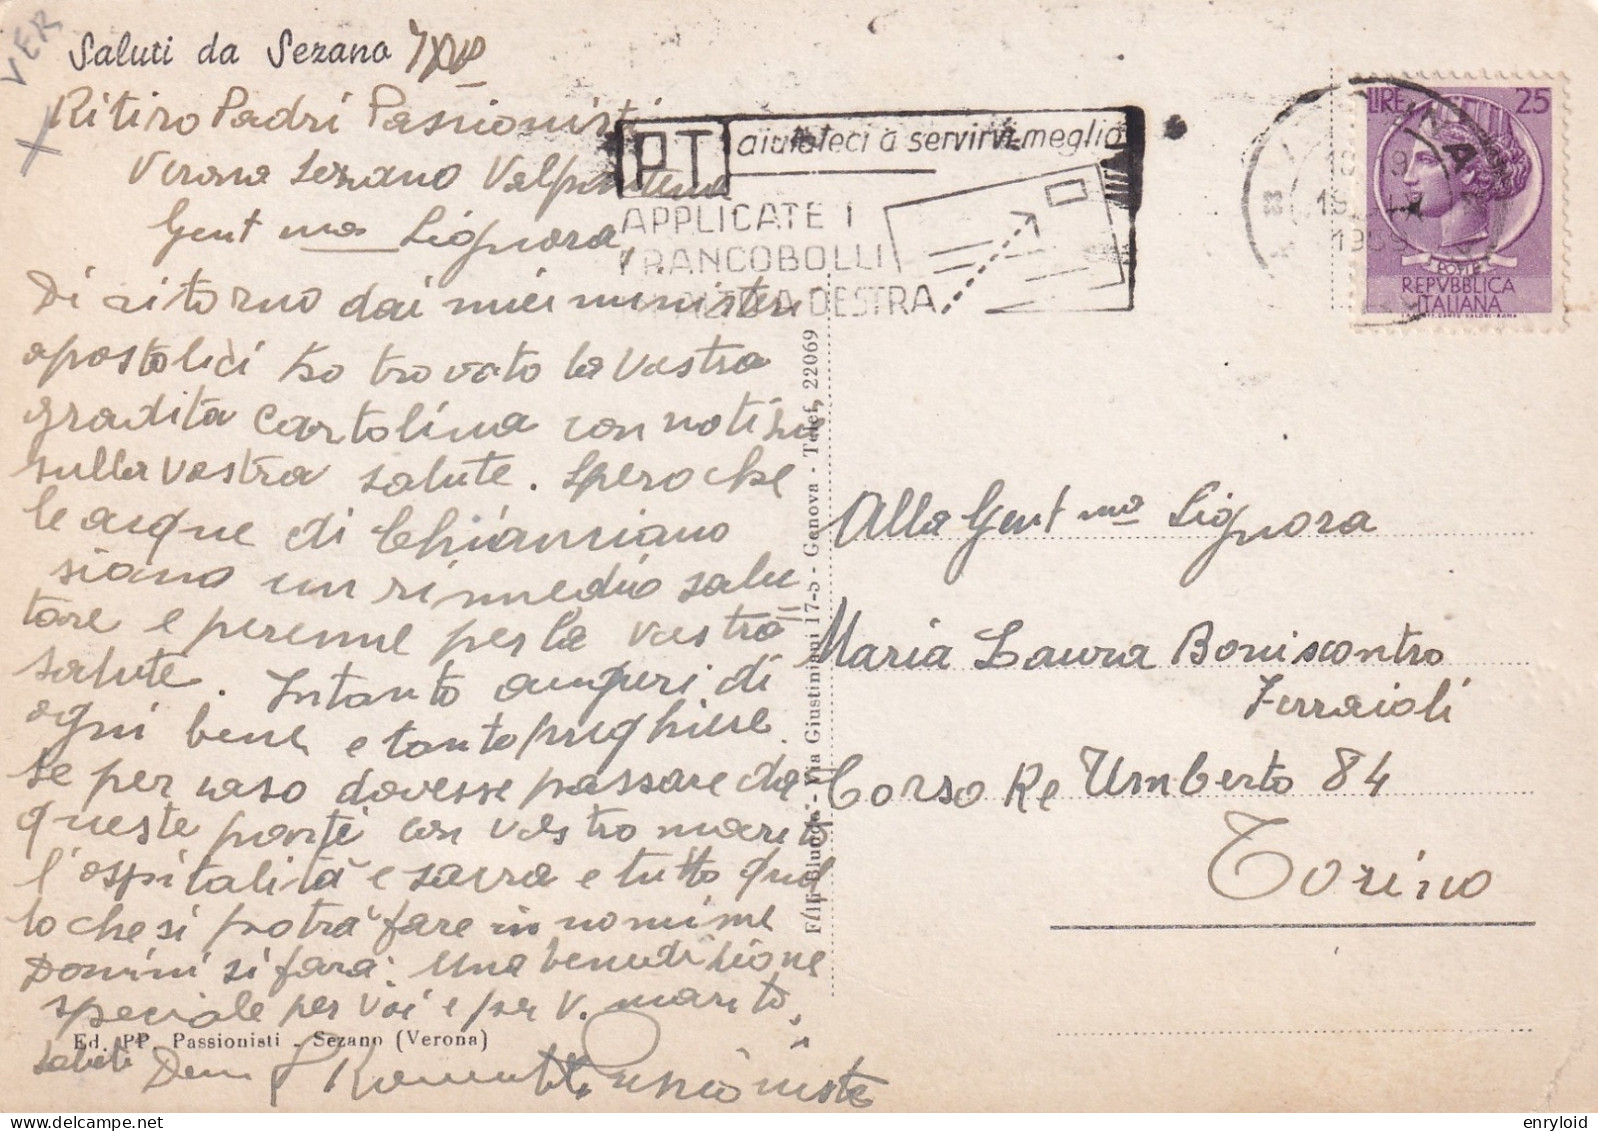 VER
Saluti da Sezano
Ritiro Padri Passionisti
Verona Sezano Valpantena
Gent ma Signora,
Di ritorno dai miei ministeri
apostolici ho trovato la Vostra
gradita cartolina con notizie
sulla vostra salute. Spero che
le acque di Chianciano
siano un rimedio salu
tare e perenne per la vostra
salute. Intanto auguri di
ogni bene e tanto preghiere.
Se per caso dovesse passare da
queste parti con vostro marito
l'ospitalità è sacra e tutto quel
lo che si potrà fare in nomime
Domini si farà. Una benedizione
speciale per voi e per V. marito.
Saluti Dev P. Passionista
Ed. PP. Passionisti - Sezano (Verona)
F/lli - Via Giustiniani 17-5 - Genova - Telef. 22069
P.T. aiutateci a servirvi meglio
APPLICATE I
FRANCOBOLLI
A DESTRA
1959
LIRE 25
POSTE
REPVBBLICA
ITALIANA
Alla Gent ma Signora
Maria Laura Boniscontro
Ferraioli
Corso Re Umberto 84
Torino
enryloid